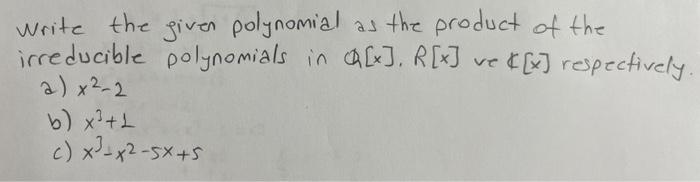 Write the given polynomial as the product of the
irreducible polynomials in Q[x], R[x] ve ₵[x] respectively.
a) x²-2
b) x³+1
c) x³-x²-5x+5